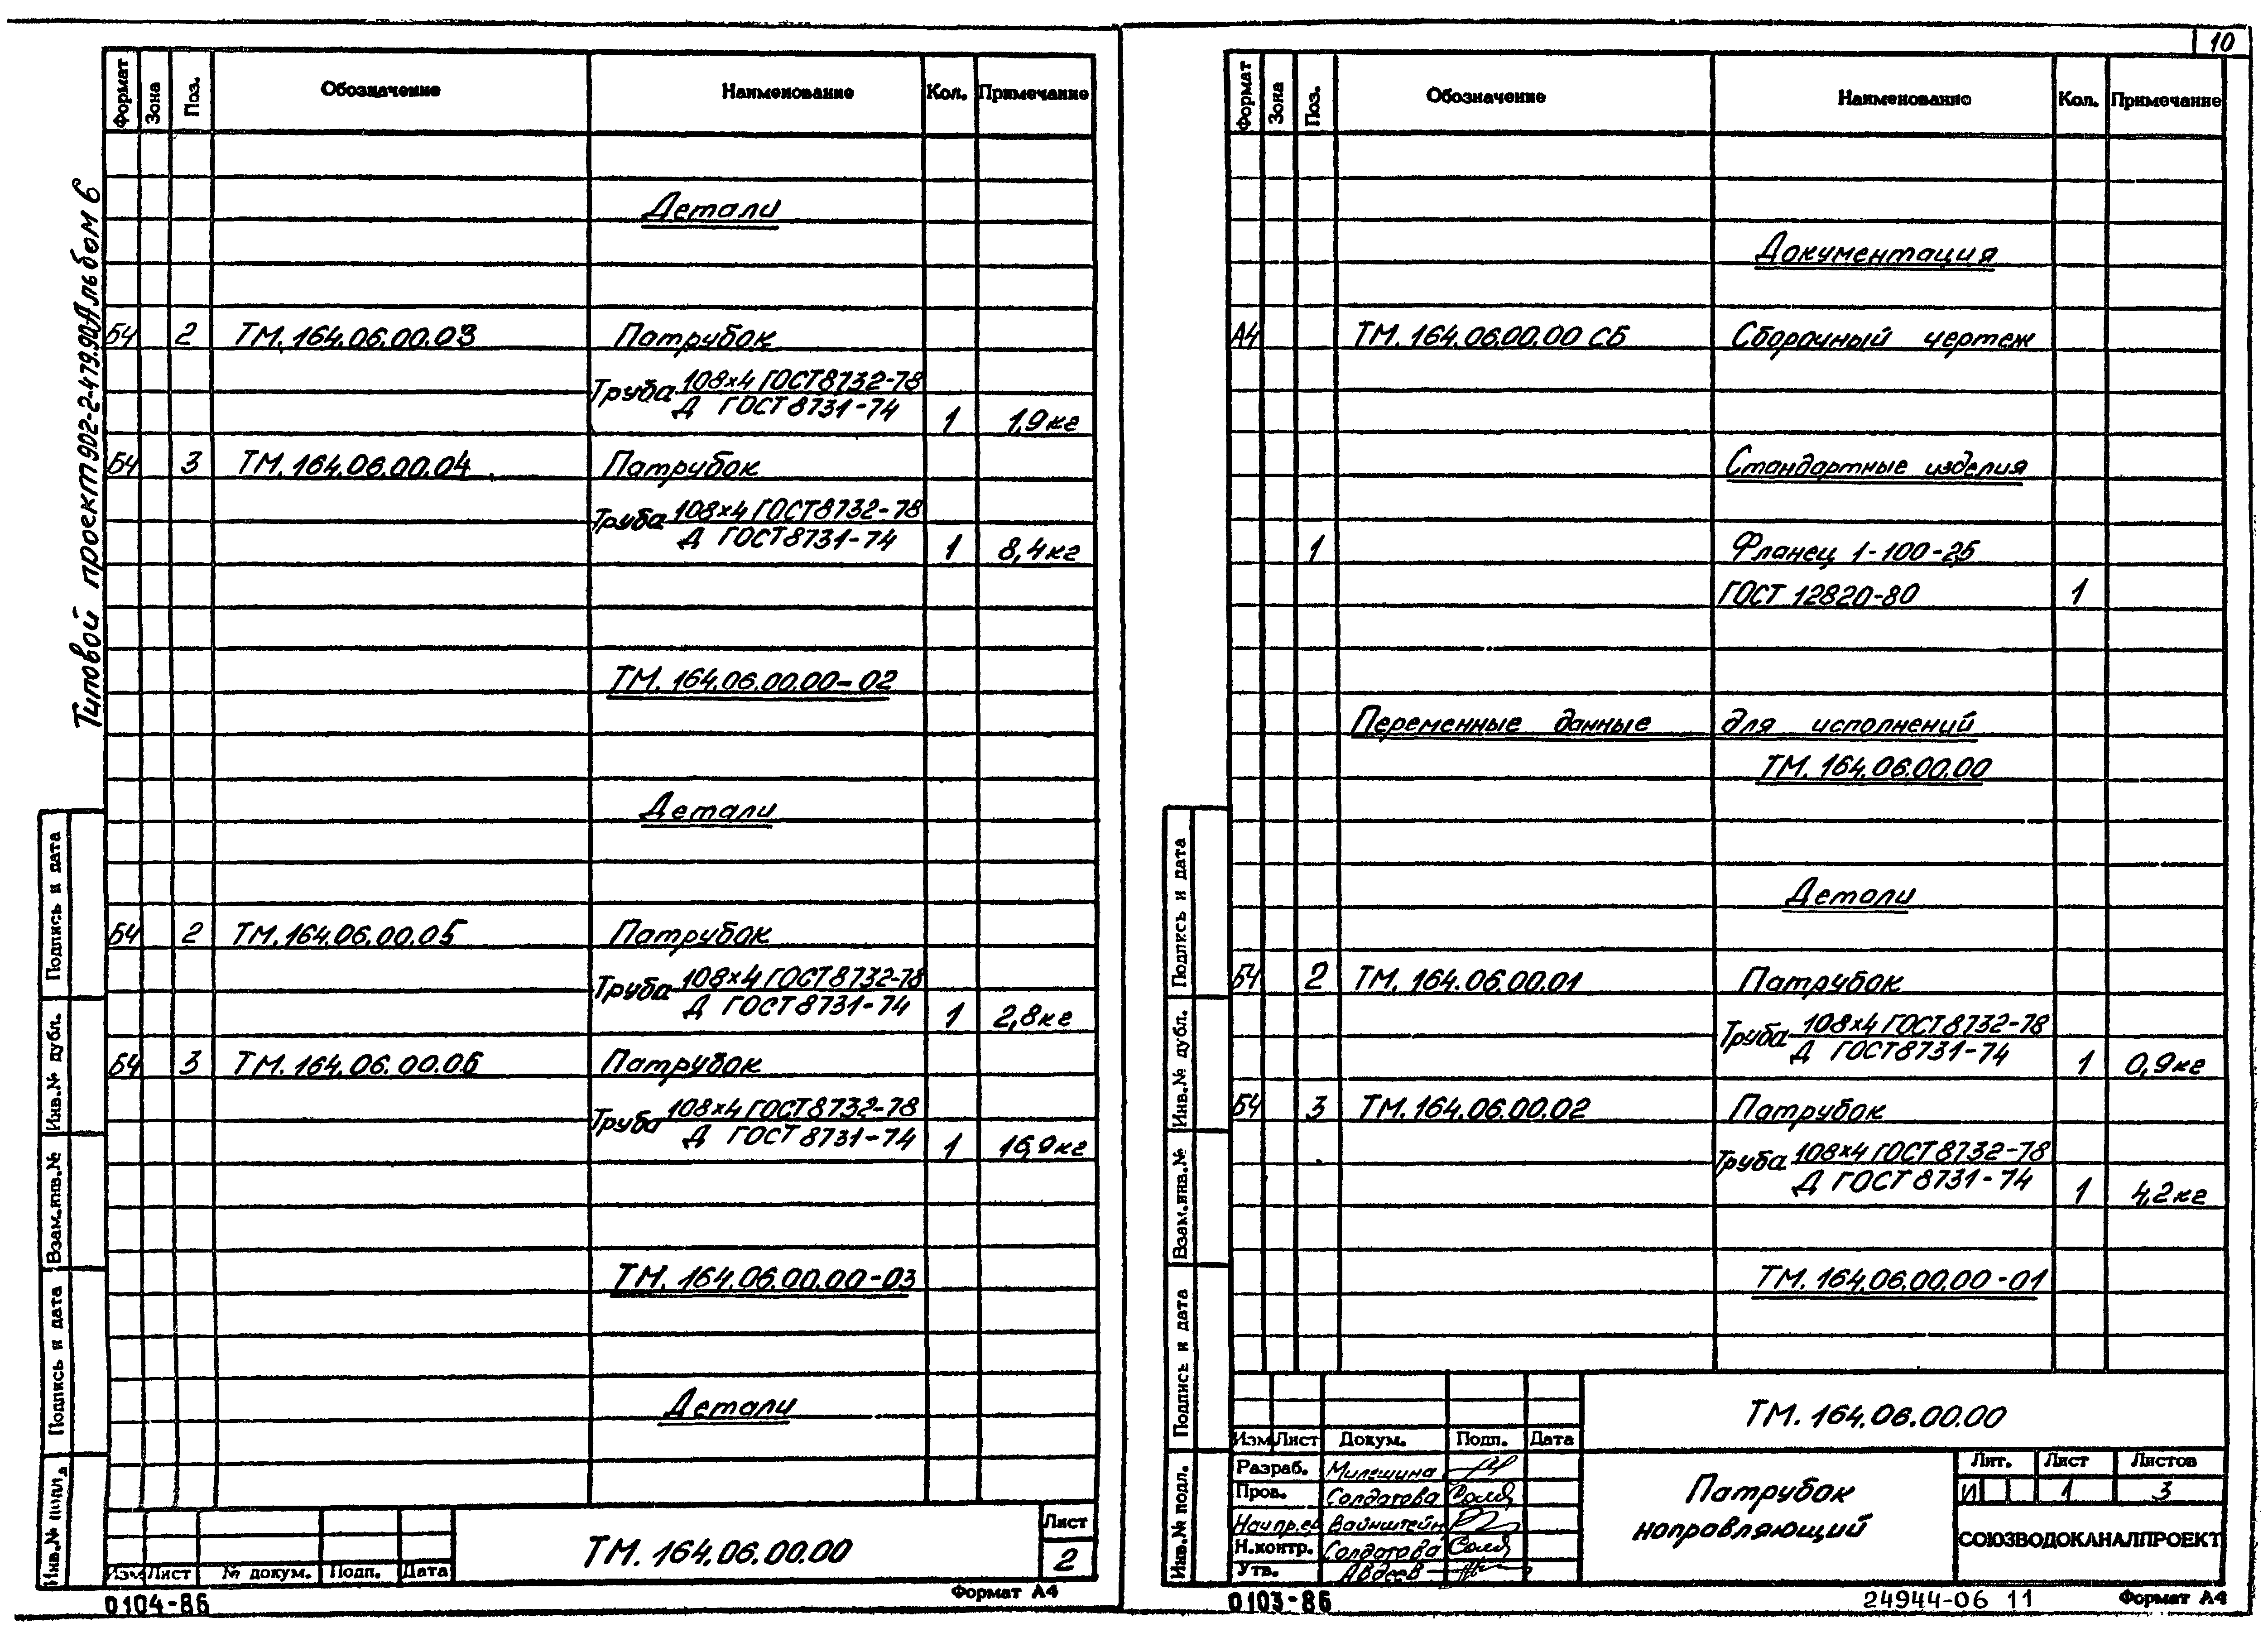 Типовой проект 902-2-479.90 Альбом 6
Формат Зона Поз. Обозначение Наименование Кол. Примечание
Детали
Б4 2 ТМ. 164.06.00.03 Патрубок
Труба 108×4 ГОСТ 8732-78
Д ГОСТ 8731-74 1 1,9кг
Б4 3 ТМ. 164.06.00.04 Патрубок
Труба 108×4 ГОСТ 8732-78
Д ГОСТ 8731-74 1 8,4кг
ТМ. 164.06.00.00-02
Детали
Б4 2 ТМ. 164.06.00.05 Патрубок
Труба 108×4 ГОСТ 8732-78
Д ГОСТ 8731-74 1 2,8кг
Б4 3 ТМ. 164.06.00.06 Патрубок
Труба 108×4 ГОСТ 8732-78
Д ГОСТ 8731-74 1 16,9кг
ТМ. 164.06.00.00-03
Детали
Подпись и дата
Инв.№ дубл.
Взам.инв.№
Подпись и дата
Инв.№ подл.
Изм Лист № докум. Подп. Дата
ТМ. 164.06.00.00
Лист
2
0104-86
Формат А4
10
Формат Зона Поз. Обозначение Наименование Кол. Примечание
Документация
А4 ТМ. 164.06.00.00 СБ Сборочный чертеж
Стандартные изделия
1 Фланец 1-100-2,5
ГОСТ 12820-80 1
Переменные данные для исполнений
ТМ. 164.06.00.00
Детали
Б4 2 ТМ. 164.06.00.01 Патрубок
Труба 108×4 ГОСТ 8732-78
Д ГОСТ 8731-74 1 0,9кг
Б4 3 ТМ. 164.06.00.02 Патрубок
Труба 108×4 ГОСТ 8732-78
Д ГОСТ 8731-74 1 4,2кг
ТМ. 164.06.00.00-01
Подпись и дата
Инв.№ дубл.
Взам.инв.№
Подпись и дата
Инв.№ подл.
ТМ. 164.06.00.00
Изм Лист Докум. Подп. Дата
Разраб. Милешина
Пров. Солдатова
Нач.пр.ед Вайнштейн
Н.контр. Солдатова
Утв. Авдеев
Патрубок
направляющий
Лит. Лист Листов
И 1 3
СОЮЗВОДОКАНАЛПРОЕКТ
0103-86
24944-06 11
Формат А4